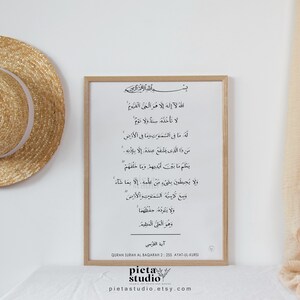 بسم الله الرحمن الرحيم
اللهُ لَآ إِلَهَ إِلَّا هُوَ الْحَيُّ الْقَيُّومُ
لَا تَأْخُذُهُ سِنَةٌ وَلَا نَوْمٌ
لَهُ مَا فِي السَّمَاوَاتِ وَمَا فِي الْأَرْضِ
مَن ذَا الَّذِي يَشْفَعُ عِندَهُ إِلَّا بِإِذْنِهِ
يَعْلَمُ مَا بَيْنَ أَيْدِيهِمْ وَمَا خَلْفَهُمْ
وَلَا يُحِيطُونَ بِشَيْءٍ مِنْ عِلْمِهِ إِلَّا بِمَا شَاءَ
وَسِعَ كُرْسِيُّهُ السَّمَاوَاتِ وَالْأَرْضَ
وَلَا يَئُودُهُ حِفْظُهُمَا
وَهُوَ الْعَلِيُّ الْعَظِيمُ
آية الكرسي
QURAN SURAH AL BAQARAH 2 : 255 AYAT-UL-KURSI
pieta
studio
pietastudio.etsy.com